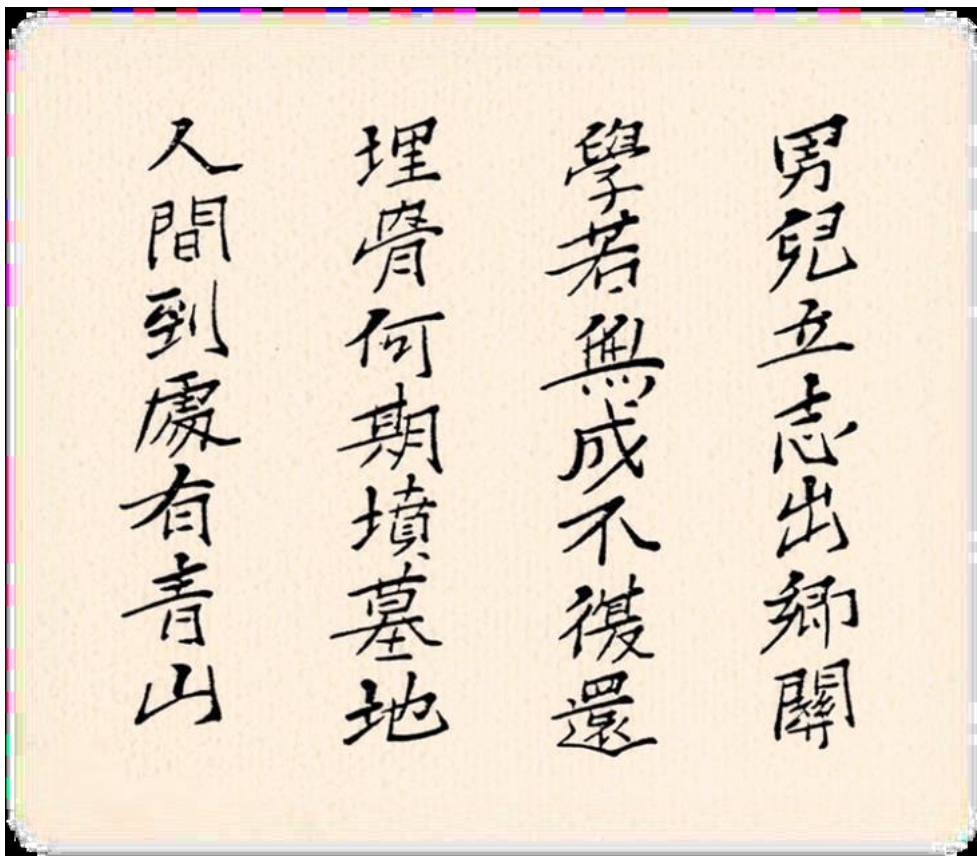 男兒立志出鄉關
學若無成不復還
埋骨何期墳墓地
人間到處有青山